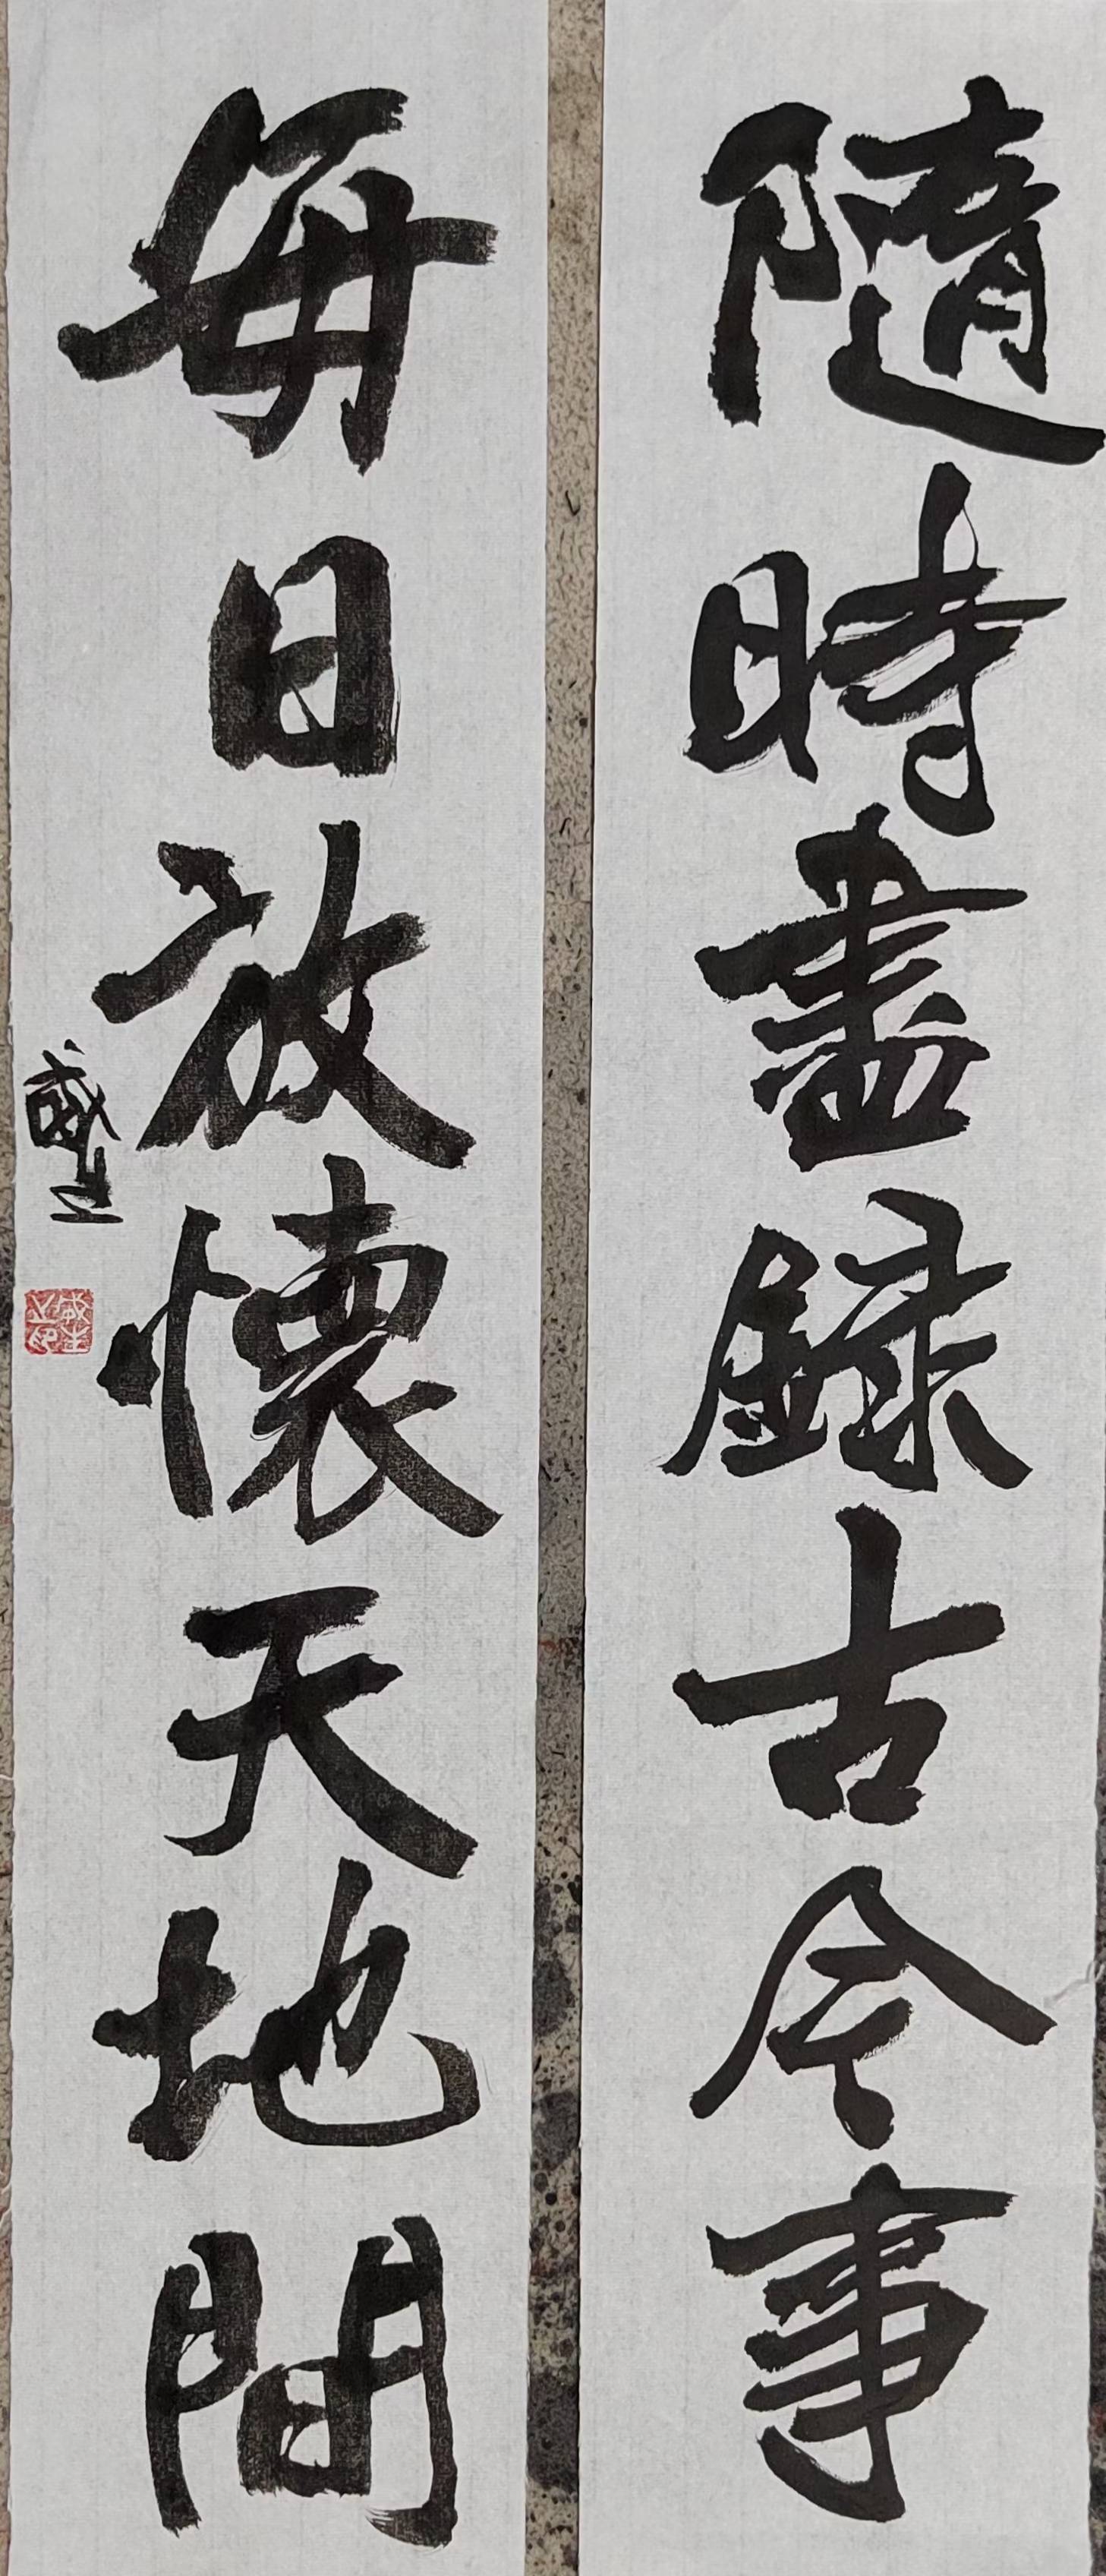 隨時盡録古今事
每日放懷天地間